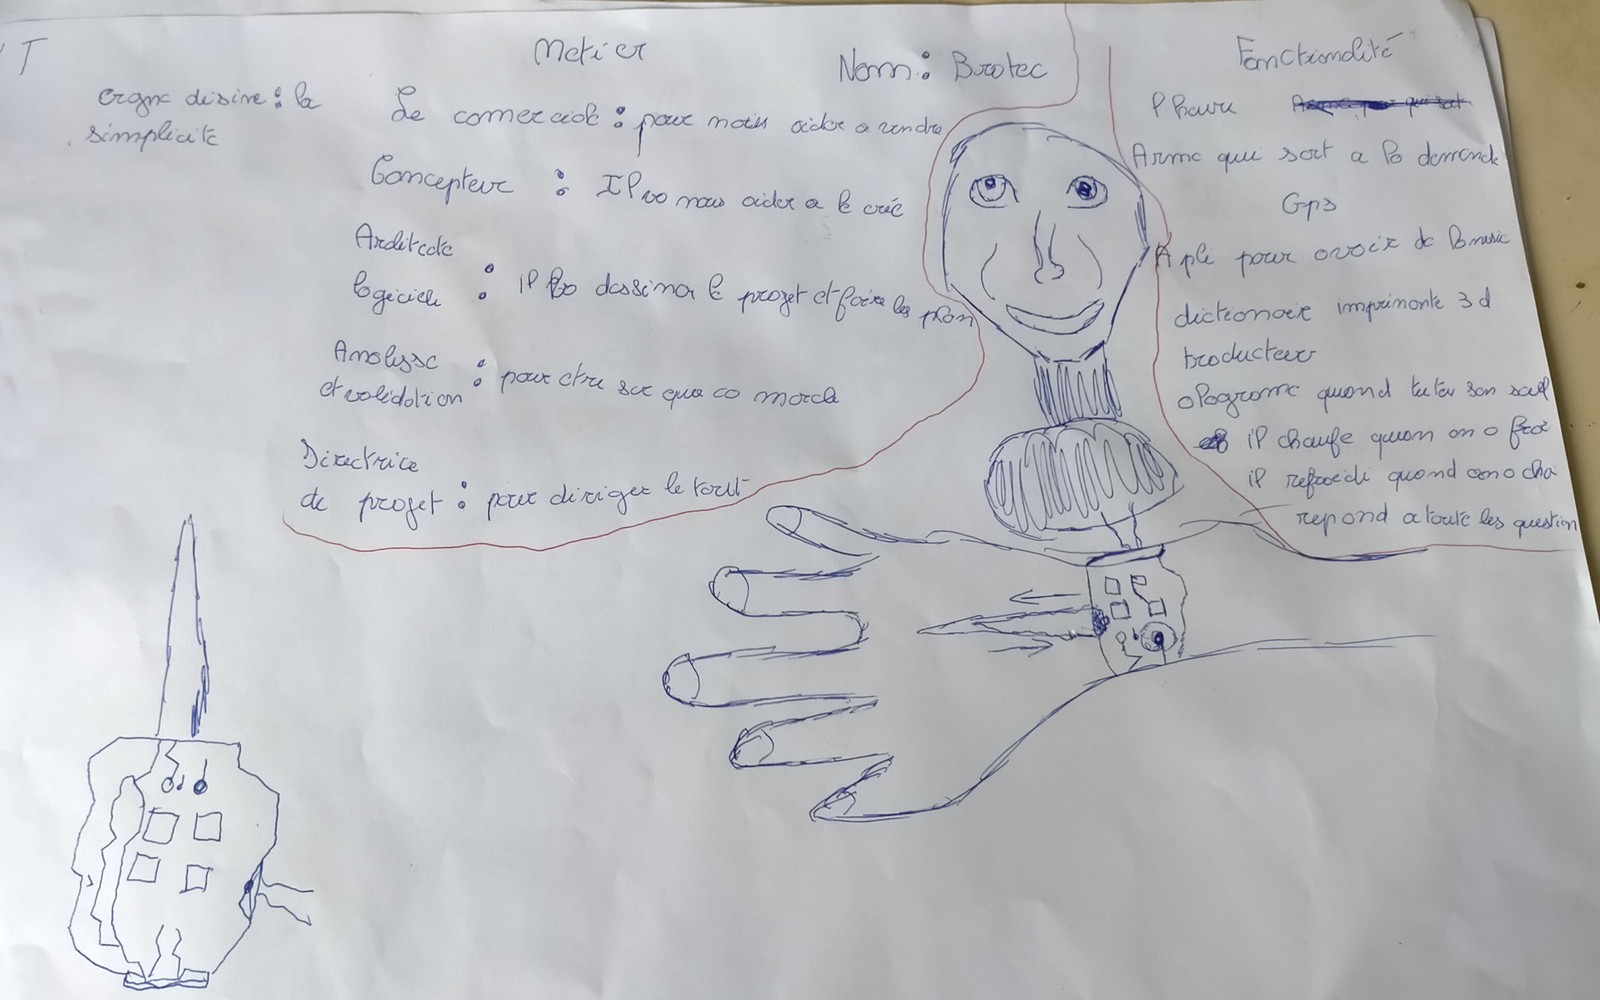 T
Metier
Nom : Brotec
Fonctionalité
orgne désire : la
simplicite
Le comerciale : pour nous aider a vendre
Concepteur : Il va nous aider a le créé
Architecte
logiciele : il va dessiner le projet et faire les plan
Analisse
et validation : pour etre sur que ca marche
Directrice
de projet : pour diriger le tout
l heure
Arme qui sort a la demande
Gps
Apli pour avoir de la music
dictionaire imprimante 3 d
traducteur
olograme quand tu ta sen seul
il chaufe quan on a froi
il refroidi quand on a cha
repond a toute les question